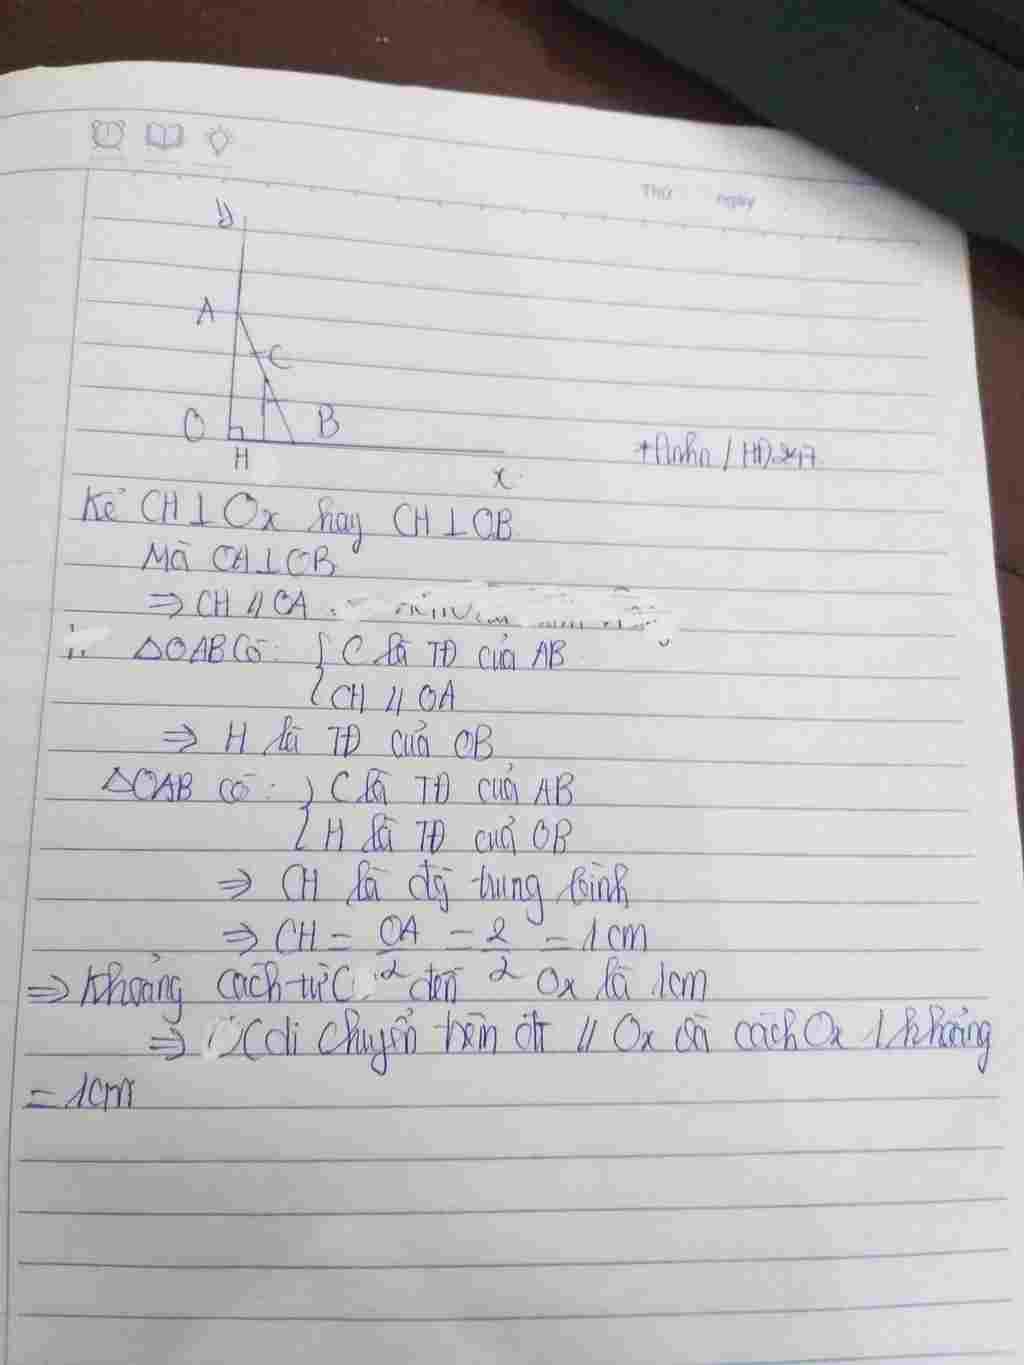 Thứ ngày
y
A
C
O
B
H
x
Kẻ CH⊥Ox hay CH⊥OB
Mà OA⊥OB
⇒ CH // OA
ΔOAB có: { C là TĐ của AB
CH // OA
⇒ H là TĐ của OB
ΔOAB có: { C là TĐ của AB
H là TĐ của OB
⇒ CH là đg trung bình
⇒ CH = OA/2 = 2/2 = 1cm
⇒ Khoảng cách từ C đến Ox là 1cm
⇒ C di chuyển trên đt // Ox và cách Ox 1 khoảng
= 1cm